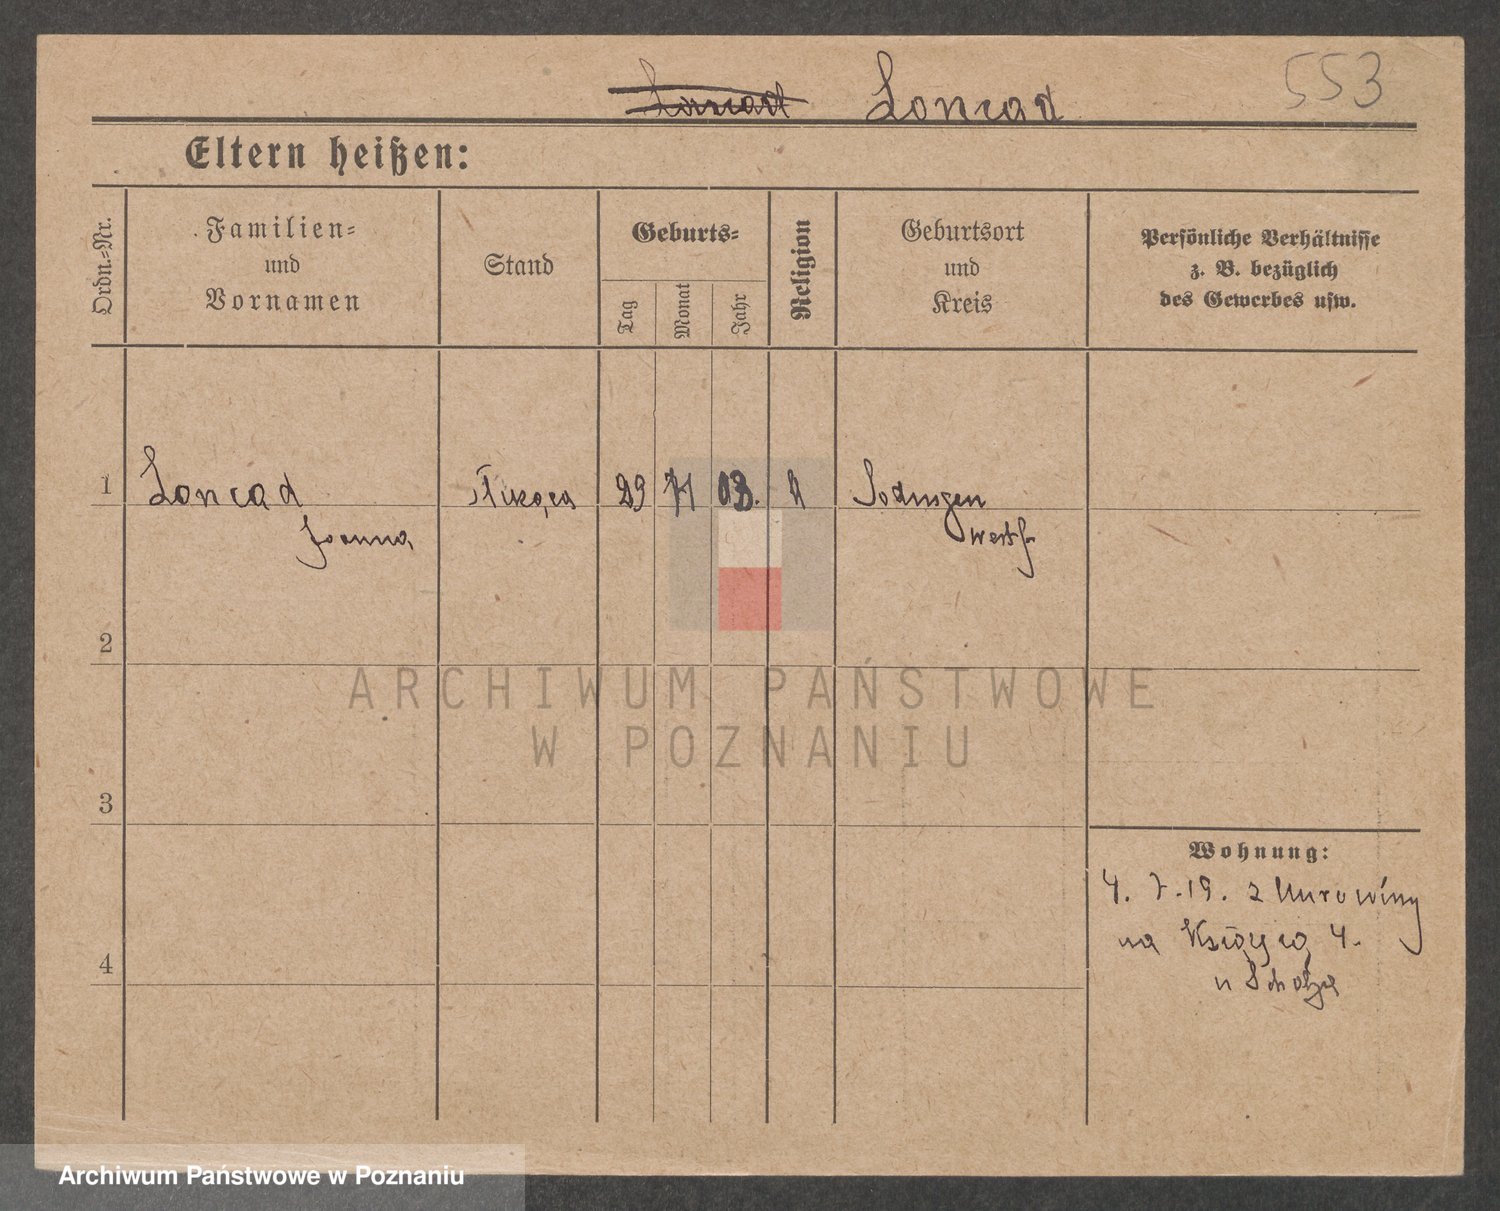 Lonrad Lonrad 553
Eltern heißen:
Ordn.-Nr.
Familien-
und
Vornamen
Stand
Geburts-
Tag
Monat
Jahr
Religion
Geburtsort
und
Kreis
Persönliche Verhältnisse
z. B. bezüglich
des Gewerbes usw.
1 Lonrad 29 03. Sodingen
Joanna Westf.
2
3
4
Wohnung:
4. 7. 19. z Murowiny
na Księżą 4.
u Scholze
ARCHIWUM PAŃSTWOWE
W POZNANIU
Archiwum Państwowe w Poznaniu